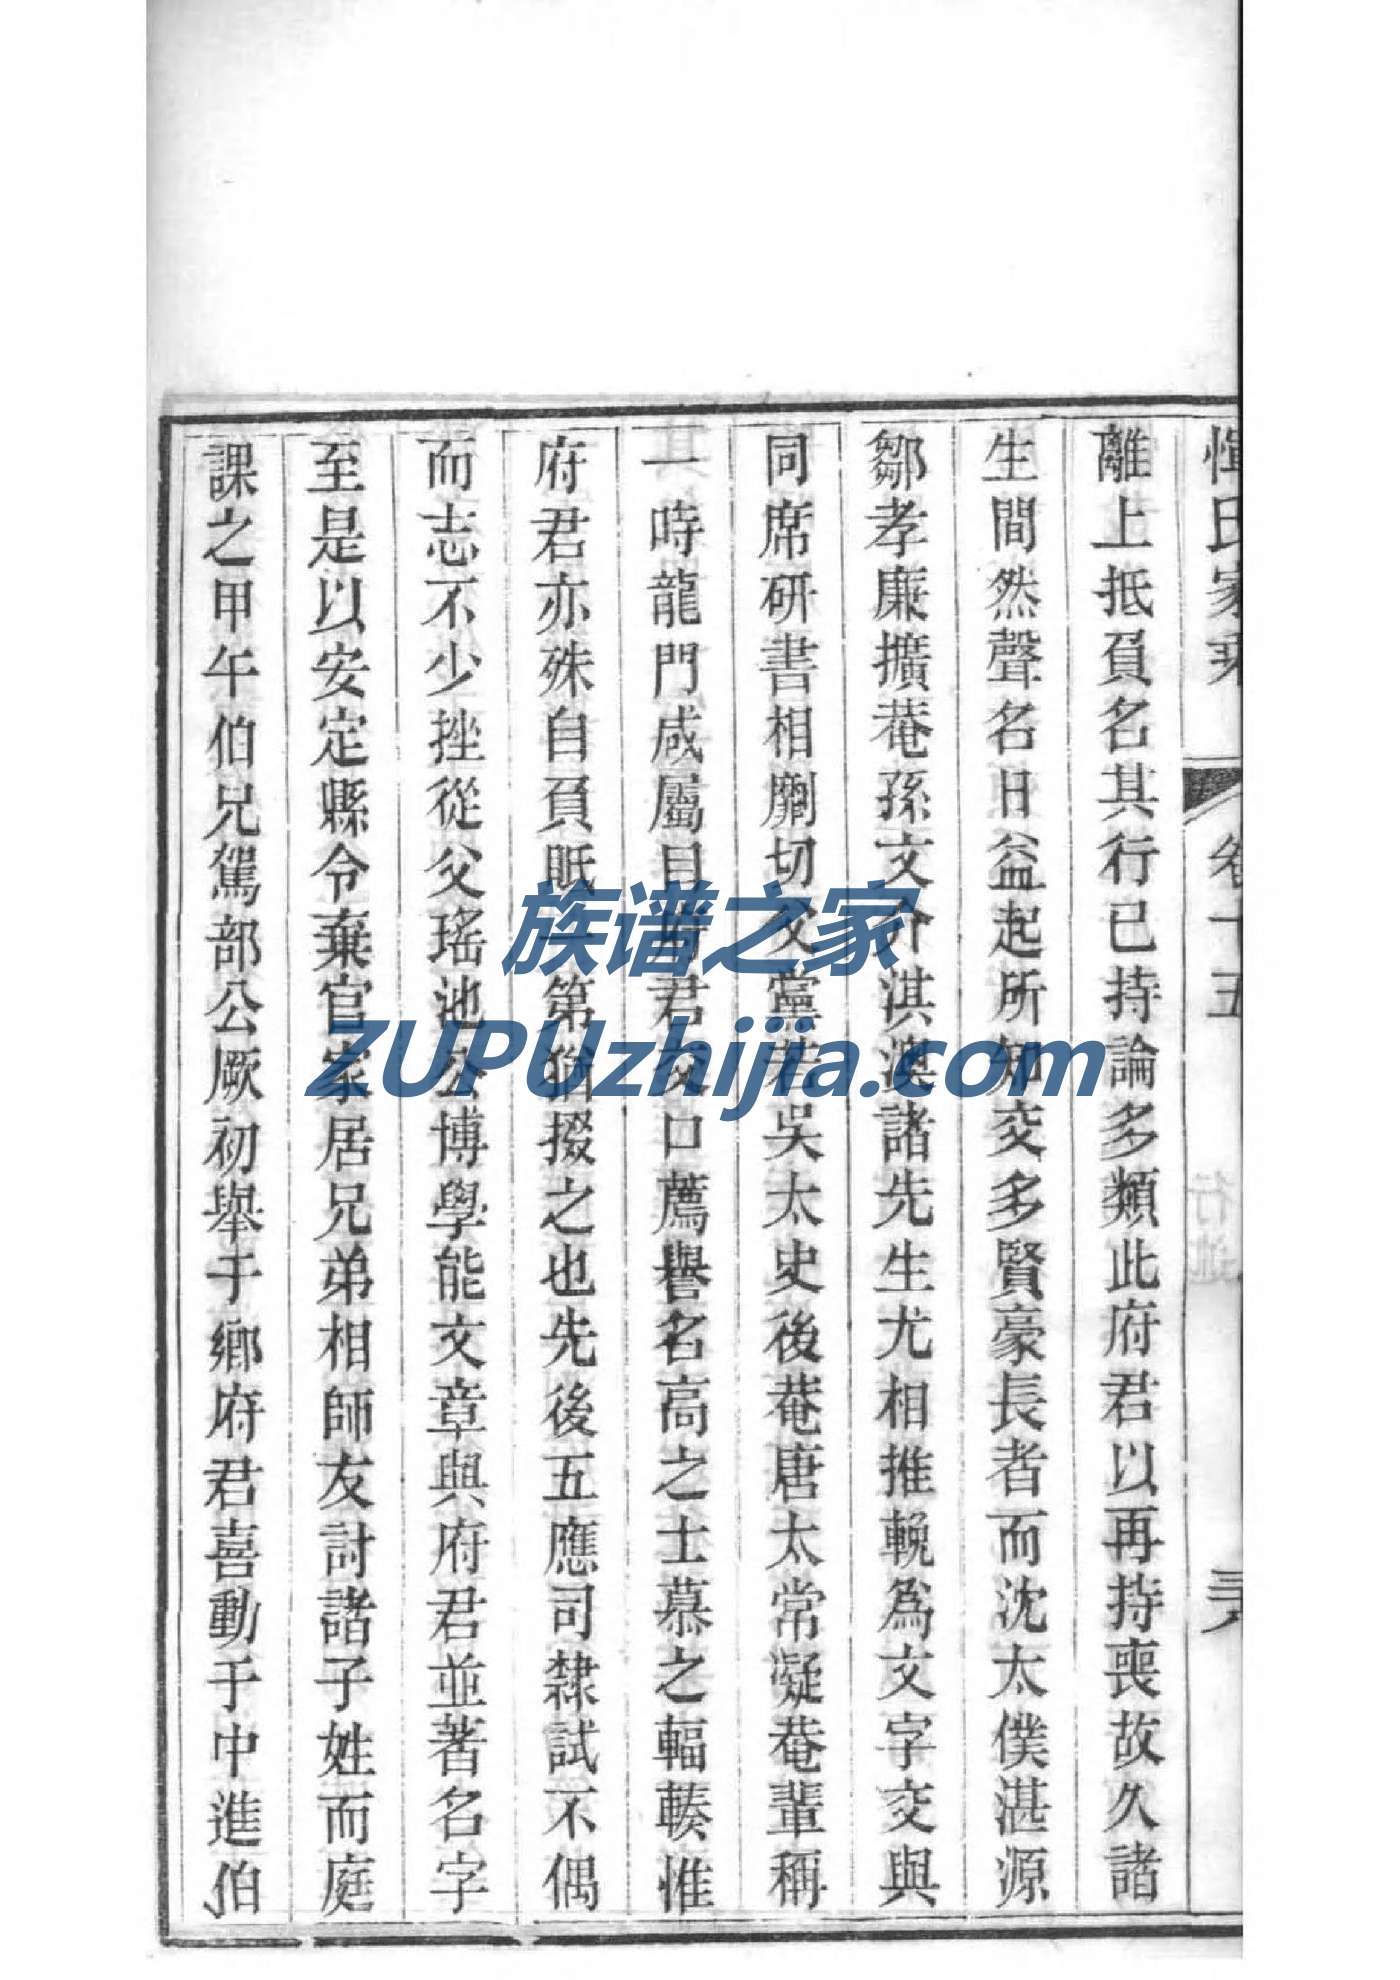 惲氏家乘 卷十五 行述
離上抵負名其行已持論多類此府君以再持喪故久諸
生間然聲名日益起所知交多賢豪長者而沈太僕湛源
鄒孝廉擴菴孫文介淇澳諸先生尤相推輓爲文字交與
同席研書相劘切父黨若吳太史後菴唐太常凝菴輩稱
一時龍門咸屬目府君交口薦譽名高之士慕之輻輳惟
府君亦殊自負眂一第猶掇之也先後五應司隸試不偶
而志不少挫從父瑤池公博學能文章與府君並著名字
至是以安定縣令棄官家居兄弟相師友討諸子姓而庭
課之甲午伯兄駕部公厥初舉于鄉府君喜動于中進伯
族谱之家
ZUPUzhijia.com